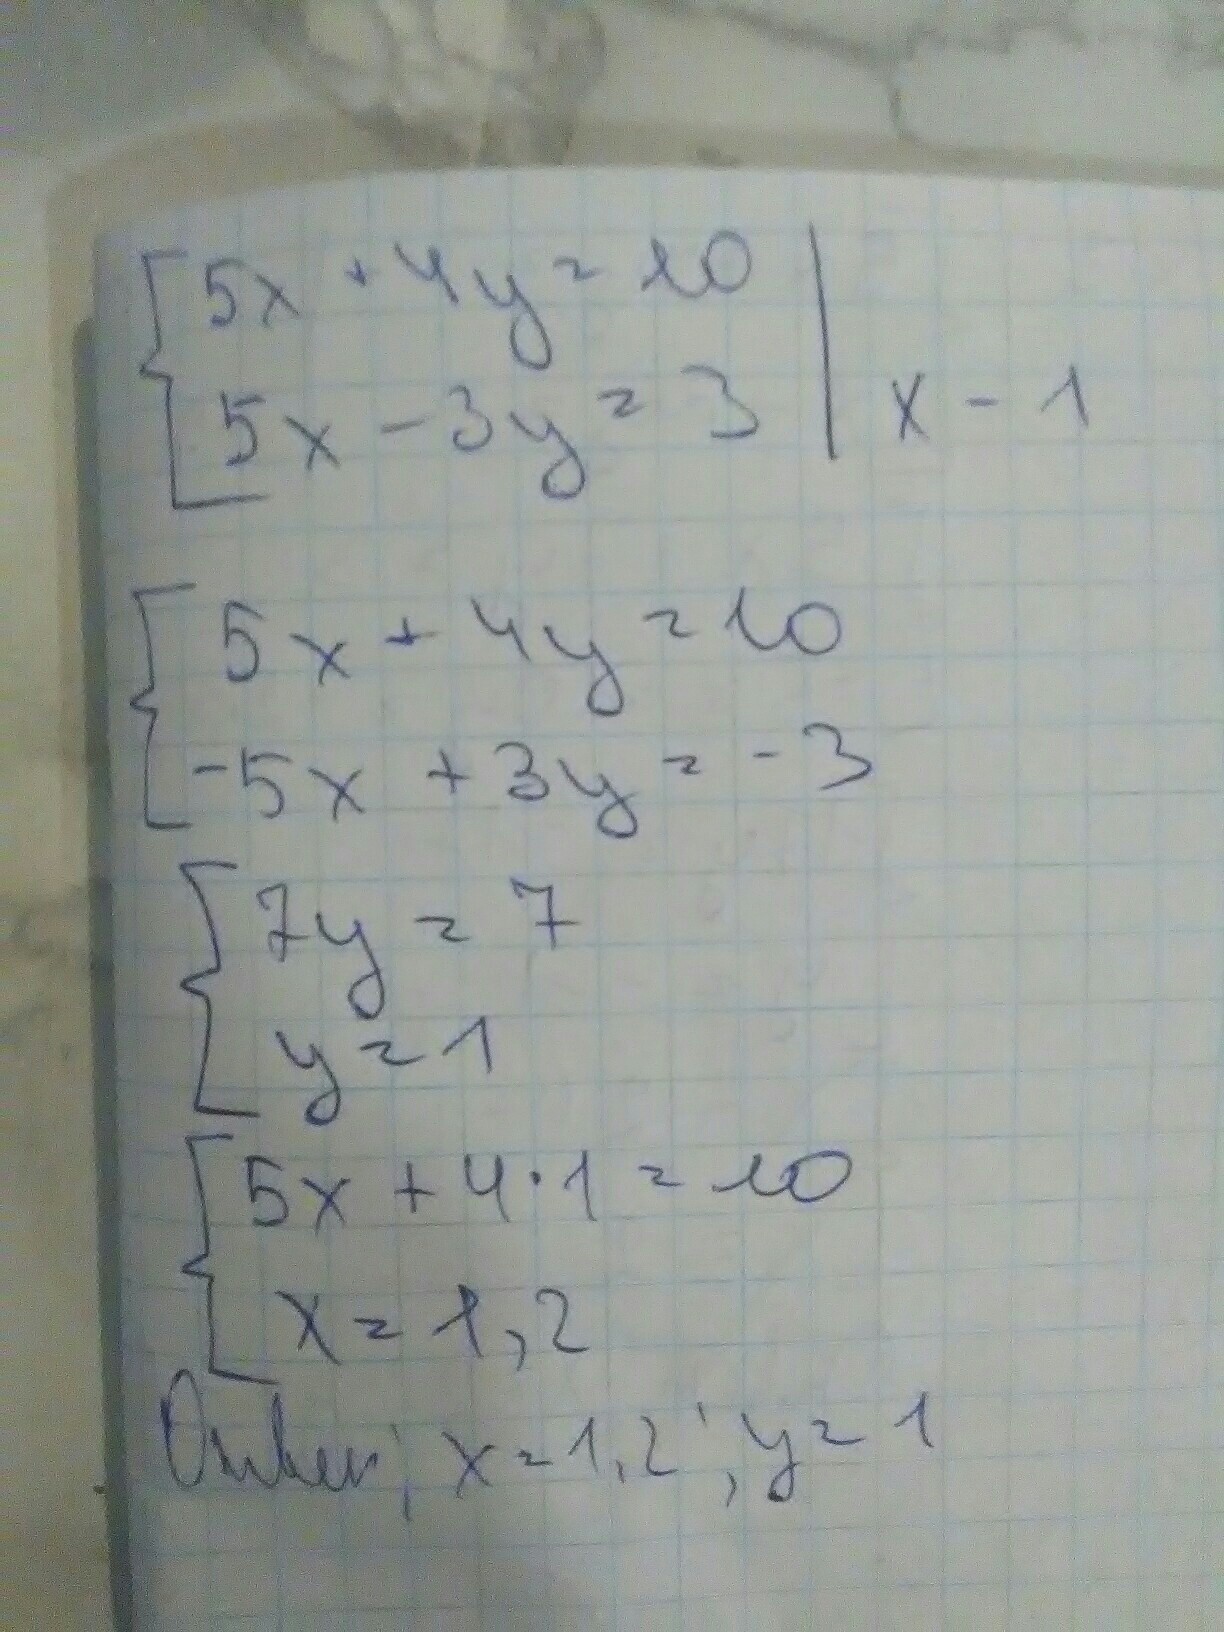 5x + 4y = 10
5x - 3y = 3 | x - 1
5x + 4y = 10
-5x + 3y = -3
7y = 7
y = 1
5x + 4·1 = 10
x = 1,2
Ответ; x = 1,2; y = 1